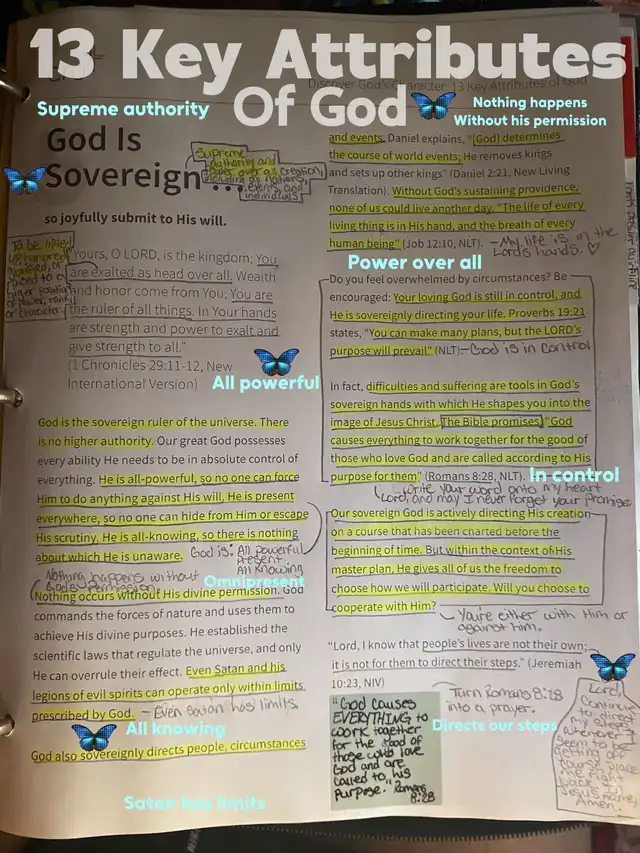 13 Key Attributes
Of God
Discover God's Character: 13 Key Attributes of God
Supreme authority
Nothing happens
Without his permission
God Is
Sovereign ...
Supreme
authority and
power over all creation,
including all nations,
events, and
individuals
so joyfully submit to His will.
To be lifted
up, honored
or
higher position
of power, rank,
or character.
"Yours, O LORD, is the kingdom; You
are exalted as head over all. Wealth
and honor come from You; You are
the ruler of all things. In Your hands
are strength and power to exalt and
give strength to all."
(1 Chronicles 29:11-12, New
International Version)
All powerful
God is the sovereign ruler of the universe. There
is no higher authority. Our great God possesses
every ability He needs to be in absolute control of
everything. He is all-powerful, so no one can force
Him to do anything against His will. He is present
everywhere, so no one can hide from Him or escape
His scrutiny. He is all-knowing, so there is nothing
about which He is unaware.
God is: All powerful
Present
All Knowing
Nothing happens without
God's permission
Omnipresent
Nothing occurs without His divine permission. God
commands the forces of nature and uses them to
achieve His divine purposes. He established the
scientific laws that regulate the universe, and only
He can overrule their effect. Even Satan and his
legions of evil spirits can operate only within limits
prescribed by God. – Even Satan has limits.
All knowing
God also sovereignly directs people, circumstances
Satan has limits
and events. Daniel explains, "[God] determines
the course of world events; He removes kings
and sets up other kings" (Daniel 2:21, New Living
Translation). Without God's sustaining providence,
none of us could live another day. "The life of every
living thing is in His hand, and the breath of every
human being" (Job 12:10, NLT). – My life is in the
Lord's hands. ♡
Power over all
Do you feel overwhelmed by circumstances? Be
encouraged: Your loving God is still in control, and
He is sovereignly directing your life. Proverbs 19:21
states, "You can make many plans, but the LORD's
purpose will prevail" (NLT) – God is in control
In fact, difficulties and suffering are tools in God's
sovereign hands with which He shapes you into the
image of Jesus Christ. The Bible promises, "God
causes everything to work together for the good of
those who love God and are called according to His
purpose for them" (Romans 8:28, NLT).
In control
Write your word onto my heart
Lord, and may I never forget your promise
Our sovereign God is actively directing His creation
on a course that has been charted before the
beginning of time. But within the context of His
master plan, He gives all of us the freedom to
choose how we will participate. Will you choose to
cooperate with Him?
You're either with Him or
against Him.
"Lord, I know that people's lives are not their own;
it is not for them to direct their steps." (Jeremiah
10:23, NIV)
Turn Romans 8:28
into a prayer.
Directs our steps
"God causes
EVERYTHING to
work together
for the good of
those who love
God and are
called to his
purpose." Romans
8:28
Lord,
Continue
to direct
my steps
whenever I
seem to be
off
course.
Jesus name,
Amen!